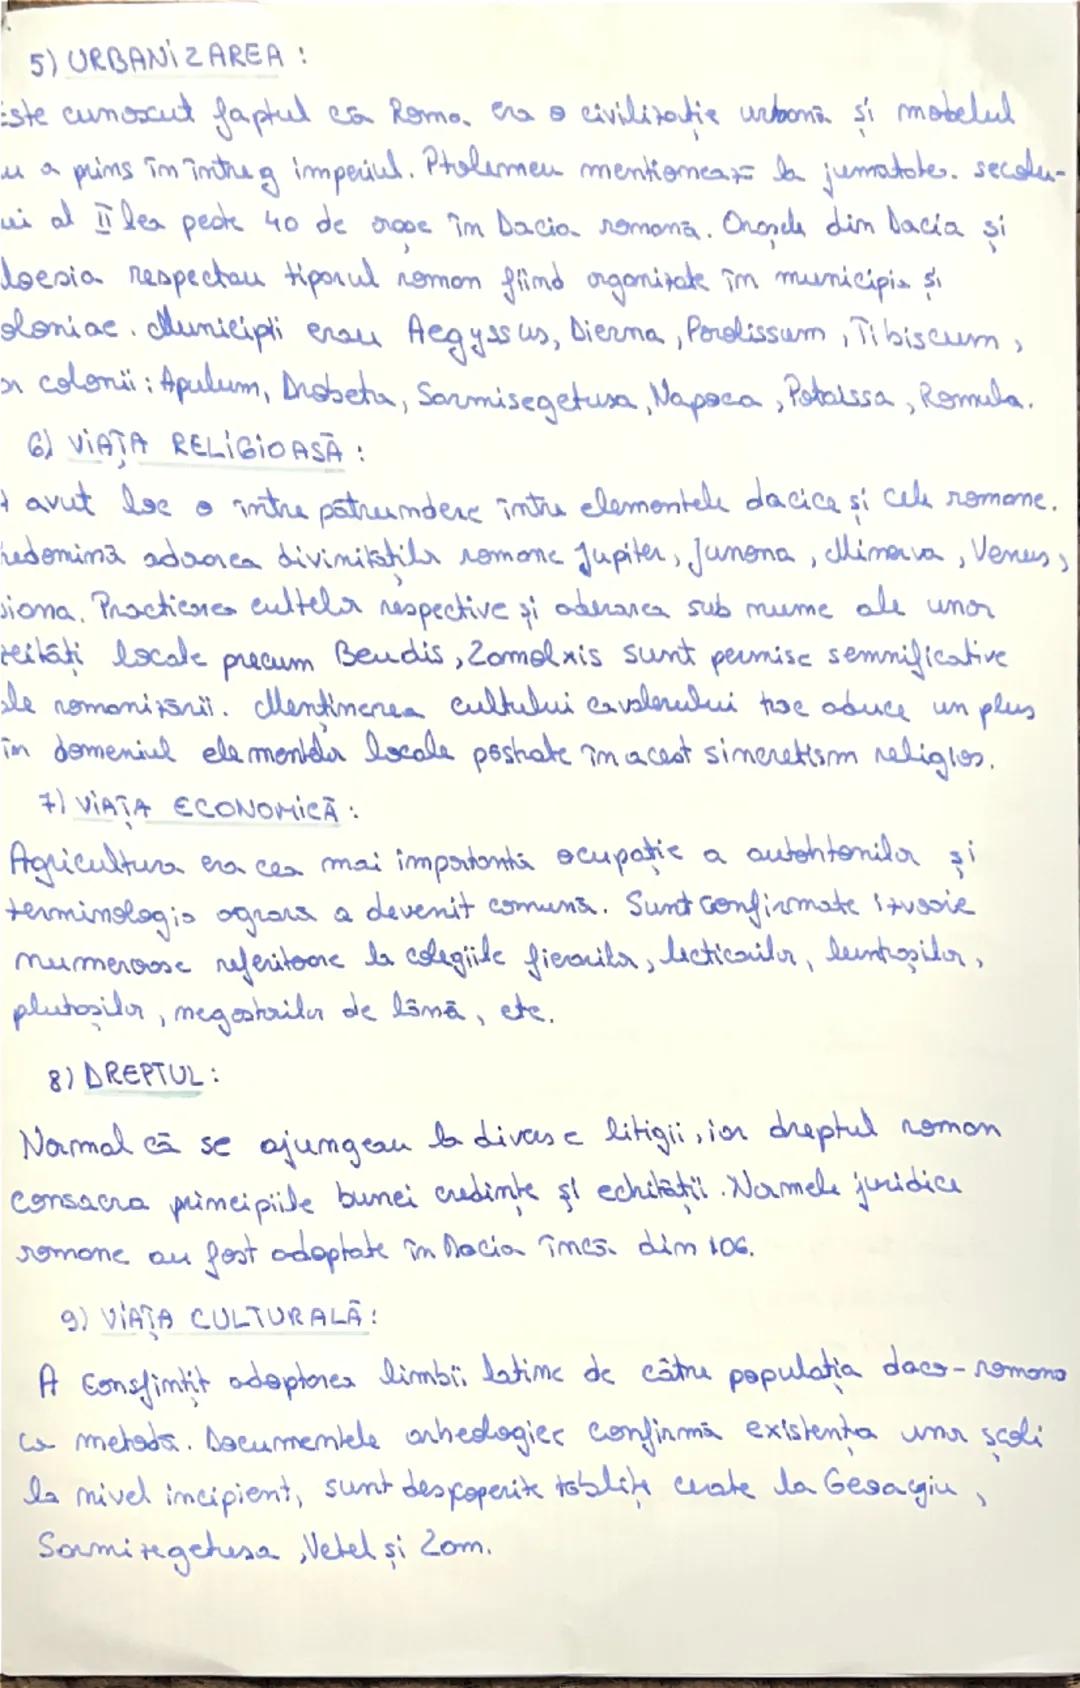 5) URBANIZAREA :
Este cunoscut faptul că Roma era o civilizație urbană și modelul
u a prins în întreg imperiul. Ptolemeu menționează la jumatatea secolu-
ui al II lea peste 40 de orașe în Dacia romană. Orașele din Dacia și
Moesia respectau tiparul roman fiind organizate în municipia și
oloniae. Municipii erau Aegyssus, Dierna, Porolissum, Tibiscum,
ar colonii : Apulum, Drobeta, Sarmisegetusa, Napoca, Potaissa, Romula.
6) VIAȚA RELIGIOASĂ :
A avut loc o întrepătrundere între elementele dacice și cele romane.
redomină adorarea divinităților romane Jupiter, Junona, Minerva, Venus,
Diana. Practicarea cultelor respective și adorarea sub nume ale unor
zeităti locale precum Bendis, Zamolxis sunt permise semnificative
ale romanizării. Menținerea cultului cavalerului trac aduce un plus
în domeniul elementelor locale păstrate în acest sincretism religios.
7) VIAȚA ECONOMICĂ :
Agricultura era cea mai importantă ocupație a autohtonilor și
terminologia agrară a devenit comună. Sunt confirmate izvoare
numeroase referitoare la colegiile fierarilor, lecticarilor, luntrașilor,
plutașilor, negostorilor de lână, etc.
8) DREPTUL :
Normal că se ajungeau la diverse litigii, iar dreptul roman
consacra principiile bunei credințe și echității. Normele juridice
romane au fost adoptate în Dacia încă din 106.
9) VIAȚA CULTURALĂ :
A consfințit adoptarea limbii latine de către populația daco-romana
ca metodă. Documentele arheologice confirmă existența unor școli
la nivel incipient, sunt descoperite tăblițe cerate la Geoagiu,
Sarmizegetusa, Vețel și Zam.